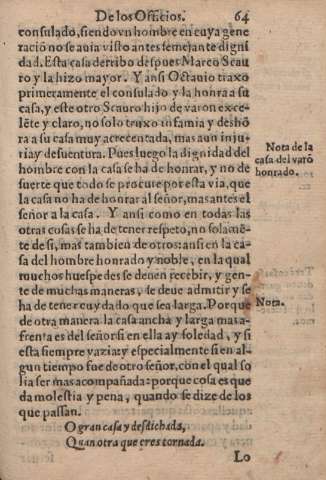 De los Officios. 64
consulado, siendo vn hombre en cuya gene
ració no se auia visto antes semejante digni
dad. Esta casa derribo despues Marco Scau
ro y la hizo mayor. Y ansi Octauio traxo
primeramente el consulado y la honra a su
casa, y este otro Scauro hijo de varon excelē
lēte y claro, no solo truxo infamia y deshō
ra a su casa muy acrecentada, mas aun inju-
ria y desuentura. Pues luego la dignidad del
hombre con la casa se ha de honrar, y no de
suerte que todo se procure por esta via, que
la casa no ha de honrar al señor, mas antes el
señor a la casa. Y ansi como en todas las
otras cosas se ha de tener respeto, no solamē-
te de si, mas tambien de otros: ansi en la ca-
sa del hombre honrado y noble, en la qual
muchos huespedes se deuen recebir, y gen-
te de muchas maneras, se deue admitir y se
ha de tener cuydado que sea larga. Porque
de otra manera la casa ancha y larga mas a-
frenta es del señor si en ella ay soledad, y si
esta siempre vazia: y especialmente si en al-
gun tiempo fue de otro señor, con el qual so
lia ser mas acompañada: porque cosa es que
da molestia y pena, quando se dize de los
que passan.
O gran casa y desdichada,
Quan otra que eres tornada.
Lo
Nota de la
casa del varō
honrado.
Nota.